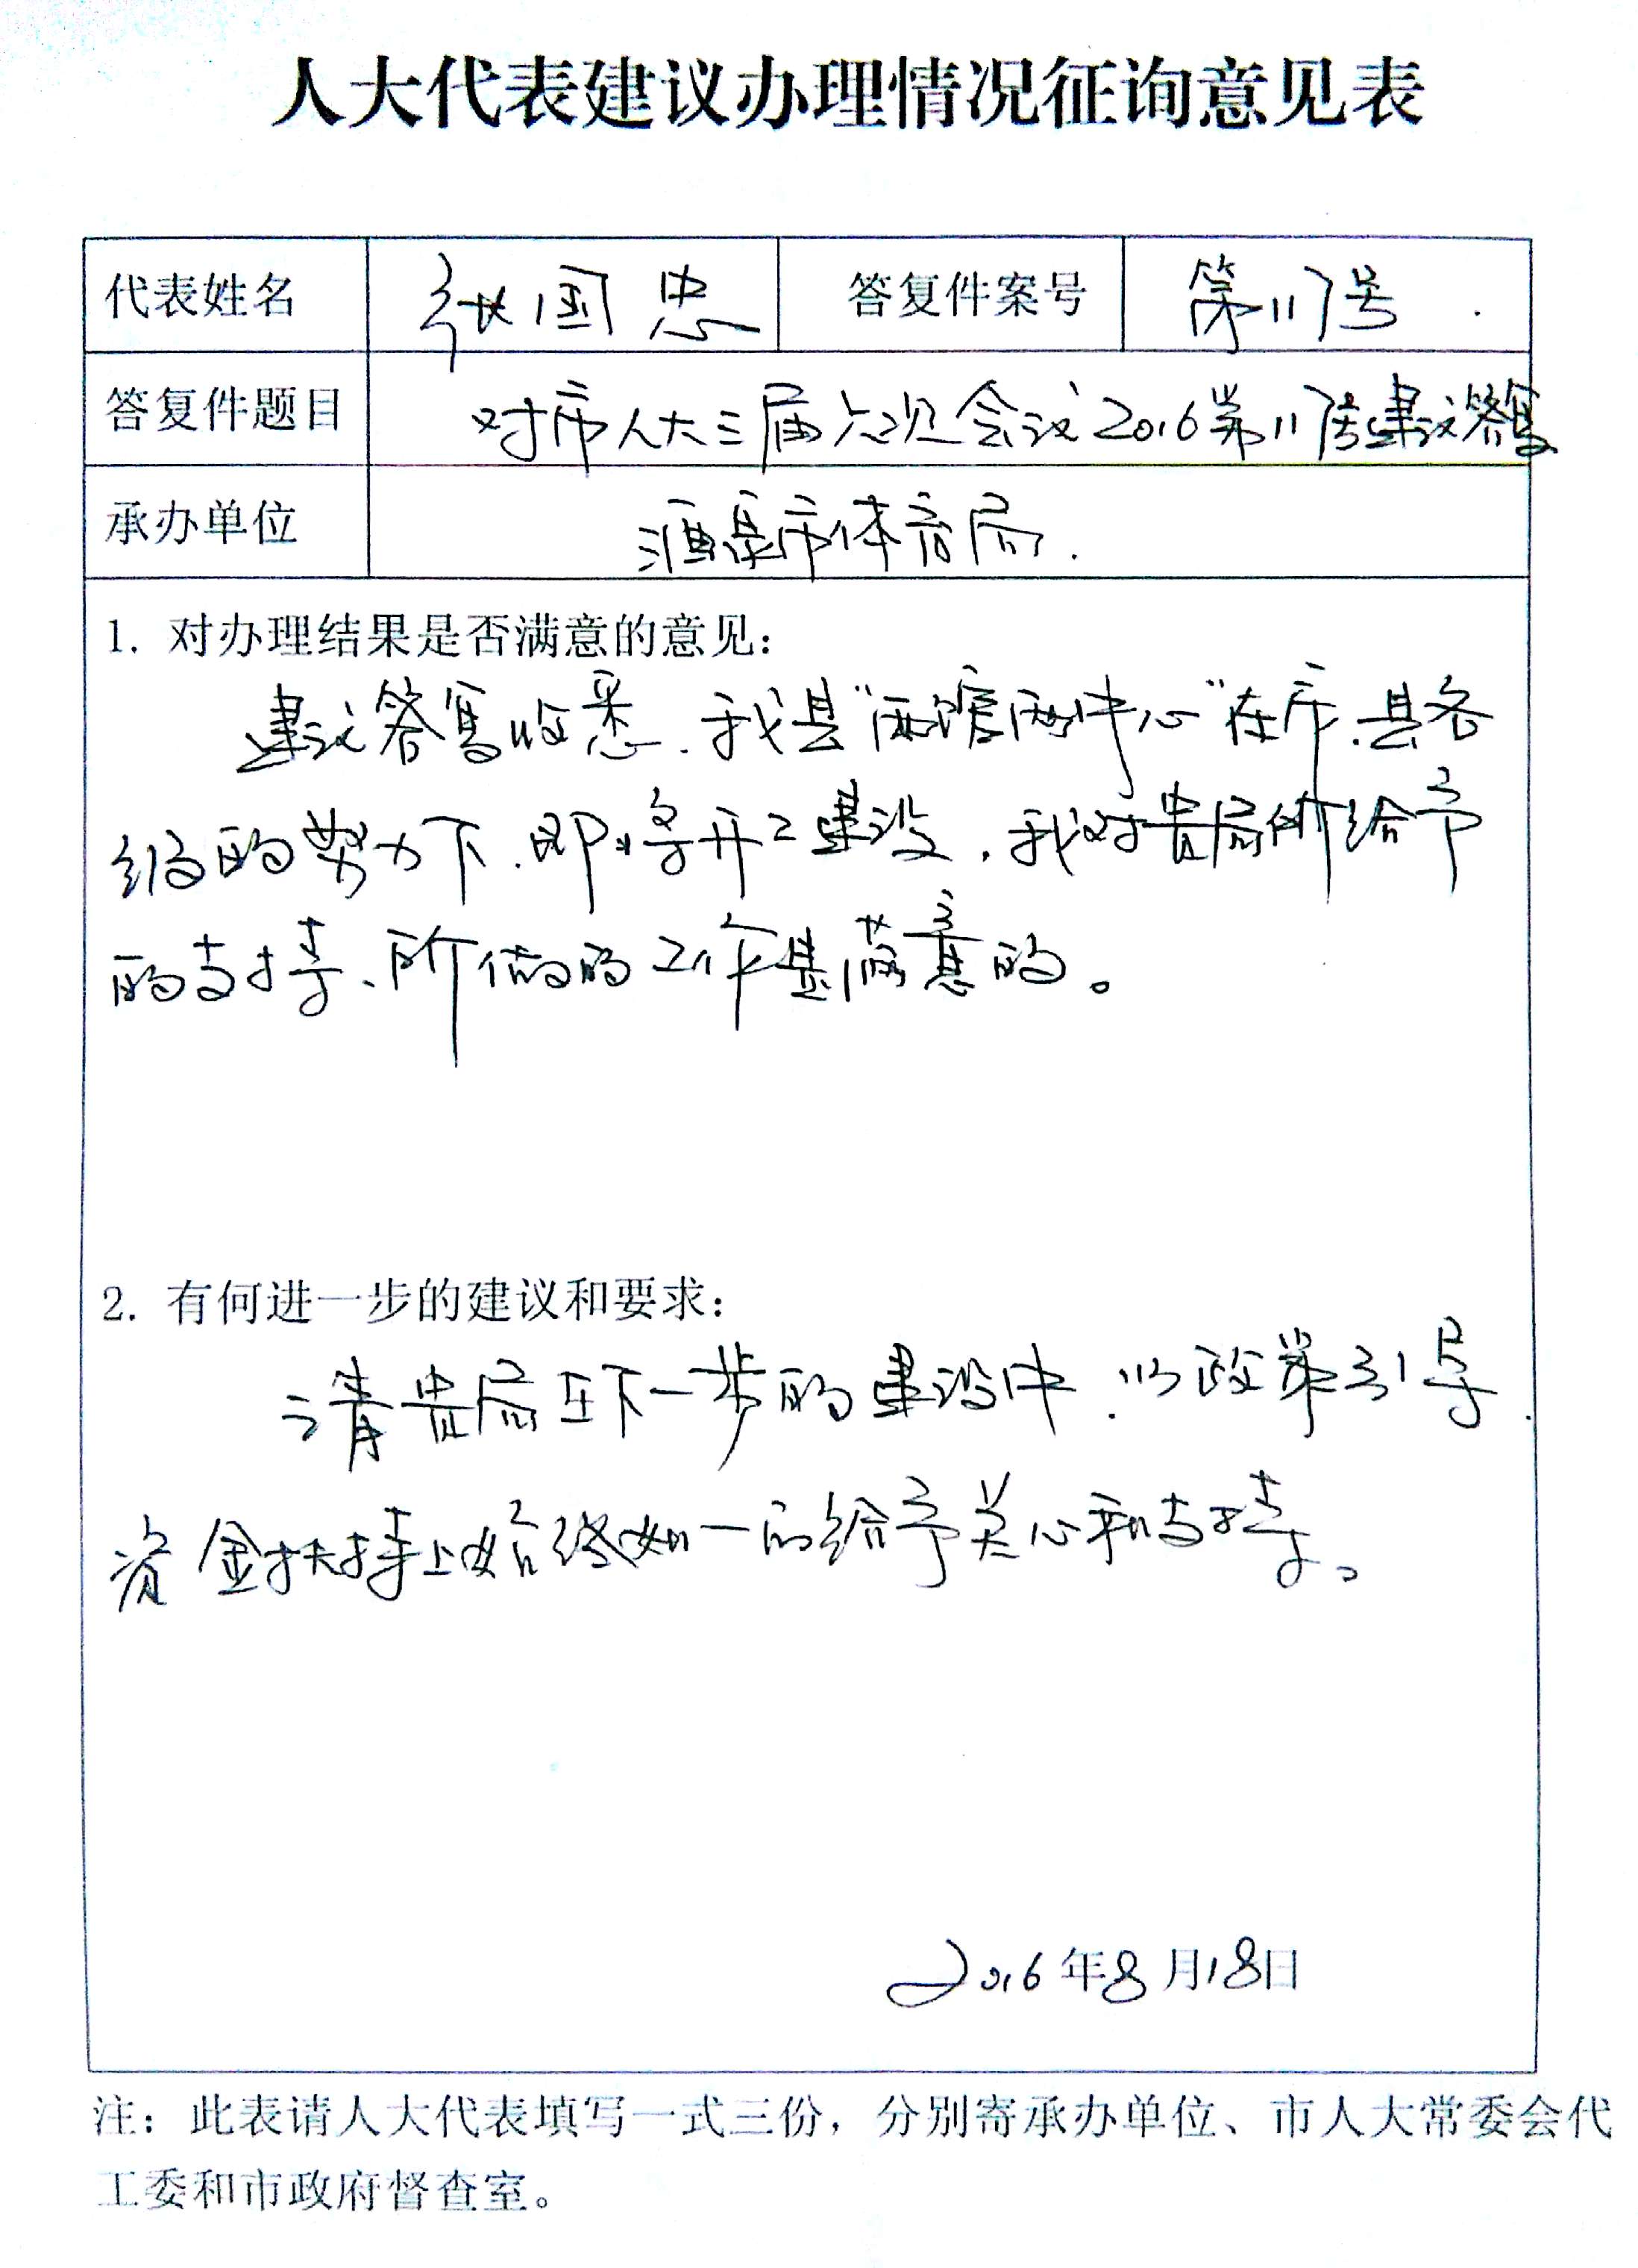 人大代表建议办理情况征询意见表
代表姓名 张国忠 答复件案号 第117号
答复件题目 对市人大三届六次会议2016第117号建议答复
承办单位 酒泉市体育局.
1. 对办理结果是否满意的意见:
建议答复收悉.我县“两馆两中心”在市.县各
级的努力下.即将开工建设,我对贵局所给予
的支持、所做的工作是满意的。
2. 有何进一步的建议和要求:
请贵局在下一步的建设中.以政策引导.
资金扶持上始终如一的给予关心和支持。
2016年8月18日
注: 此表请人大代表填写一式三份, 分别寄承办单位、市人大常委会代
工委和市政府督查室。